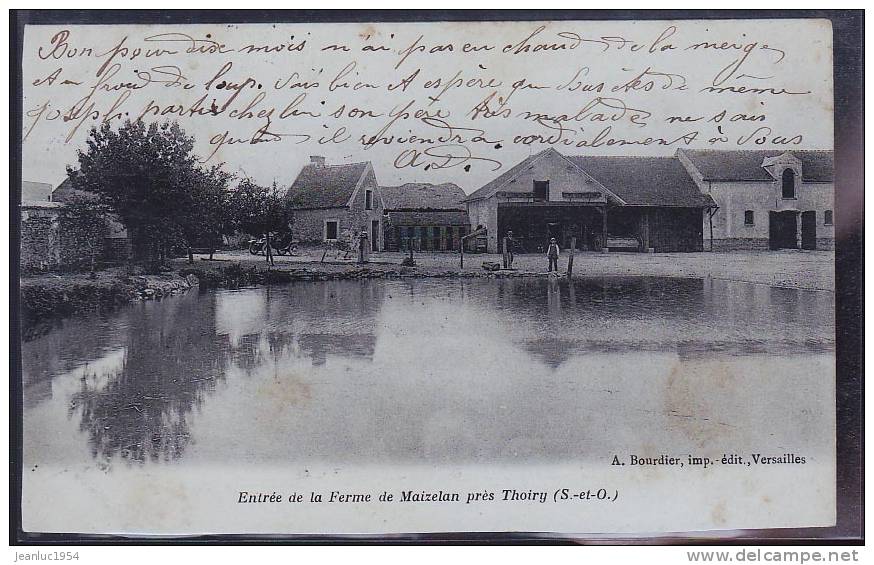 Bon pour dix mois n'ai pas eu chaud de la neige
et un froid de loup. Suis bien et espère que Sus êtes de même
Joseph partir chez lui son père très malade ne sais
quand il reviendra cordialement à Vous
A.D.
A. Bourdier, imp.-édit., Versailles
Entrée de la Ferme de Maizelan près Thoiry (S.-et-O.)
jeanluc1954
www.delcampe.net